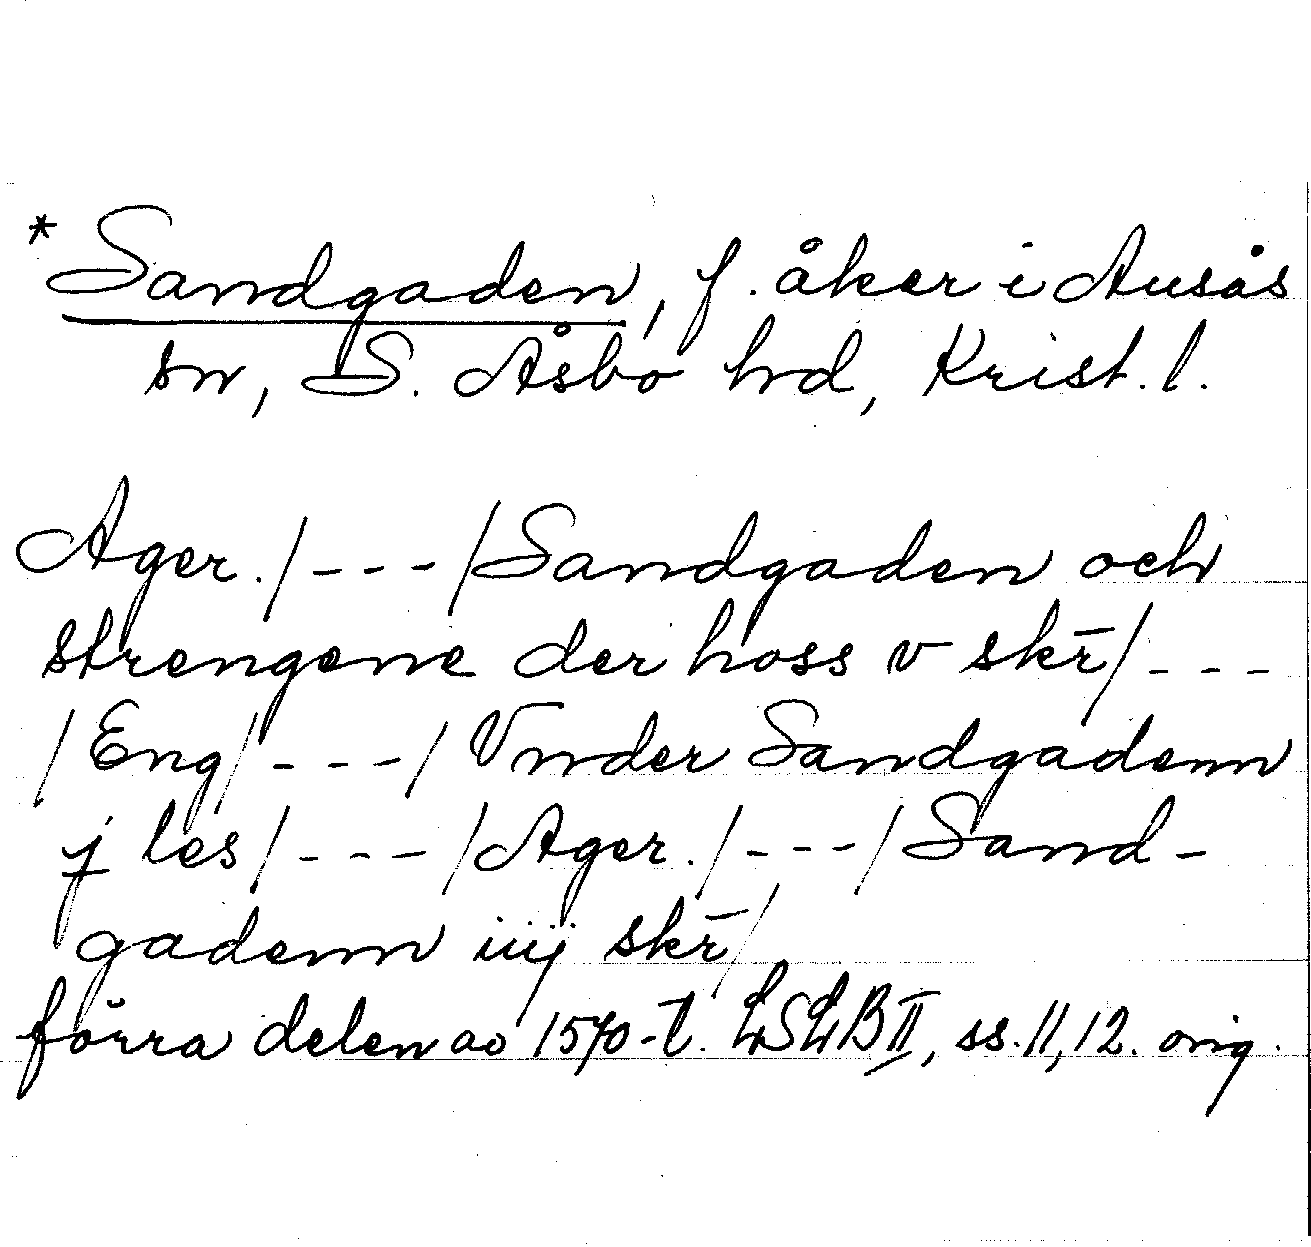 *Sandgaden, f. åker i Ausås
sn, S. Åsbo hd, Krist. l.
Ager. /---/ Sandgaden och
strengene der hoss v skr̄/---
/Eng/---/ Vnder Sandgadenn
j les/---/Ager./---/Sand-
gadenn iiij skr̄/
förra delen av 1570-t. LSLB II, ss. 11, 12. orig.